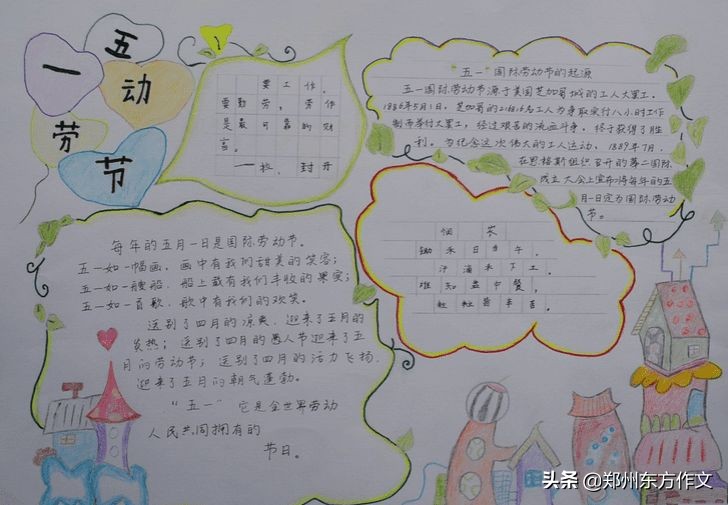 五
一
动
劳
节
要工作，
要勤劳：劳作
是最可靠的财
富。
——拉·封丹
"五一"国际劳动节的起源
五一国际劳动节源于美国芝加哥城的工人大罢工。
1886年5月1日，芝加哥的21.6万名工人为争取实行八小时工作
制而举行大罢工，经过艰苦的流血斗争，终于获得了胜
利。为纪念这次伟大的工人运动，1889年7月，
在恩格斯组织召开的第二国际
成立大会上宣布将每年的五
月一日定为国际劳动
节。
悯农
锄禾日当午，
汗滴禾下土。
谁知盘中餐，
粒粒皆辛苦。
每年的五月一日是国际劳动节。
五一如一幅画，画中有我们甜美的笑容；
五一如一艘船，船上载有我们丰收的果实；
五一如一首歌，歌中有我们的欢笑。
送别了四月的凉爽，迎来了五月的
炎热；送别了四月的愚人节迎来了五
月的劳动节；送别了四月的活力飞扬，
迎来了五月的朝气蓬勃。
"五一"它是全世界劳动
人民共同拥有的
节日。
头条 @郑州东方作文